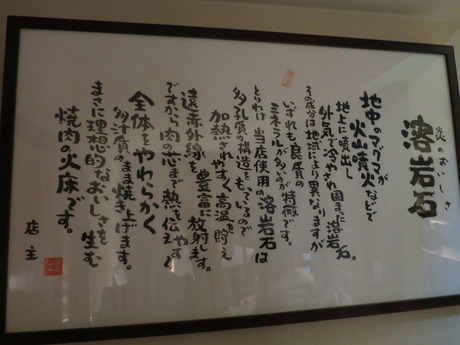 炎のおいしさ
溶岩石
地中のマグマが
火山噴火などで
地上に噴出し
外気で冷やされ固まった溶岩石。
その成分は地域により異なりますが
いずれも良質の
ミネラルが多いのが特徴です。
とりわけ当店使用の溶岩石は
多孔質の構造をもっているので
加熱されやすく高温を貯え
遠赤外線を豊富に放射します。
ですから肉の芯まで熱を伝えやすく
全体をやわらかく
多汁質のまま焼き上げます。
まさに理想的なおいしさを生む
焼肉の火床です。
店主